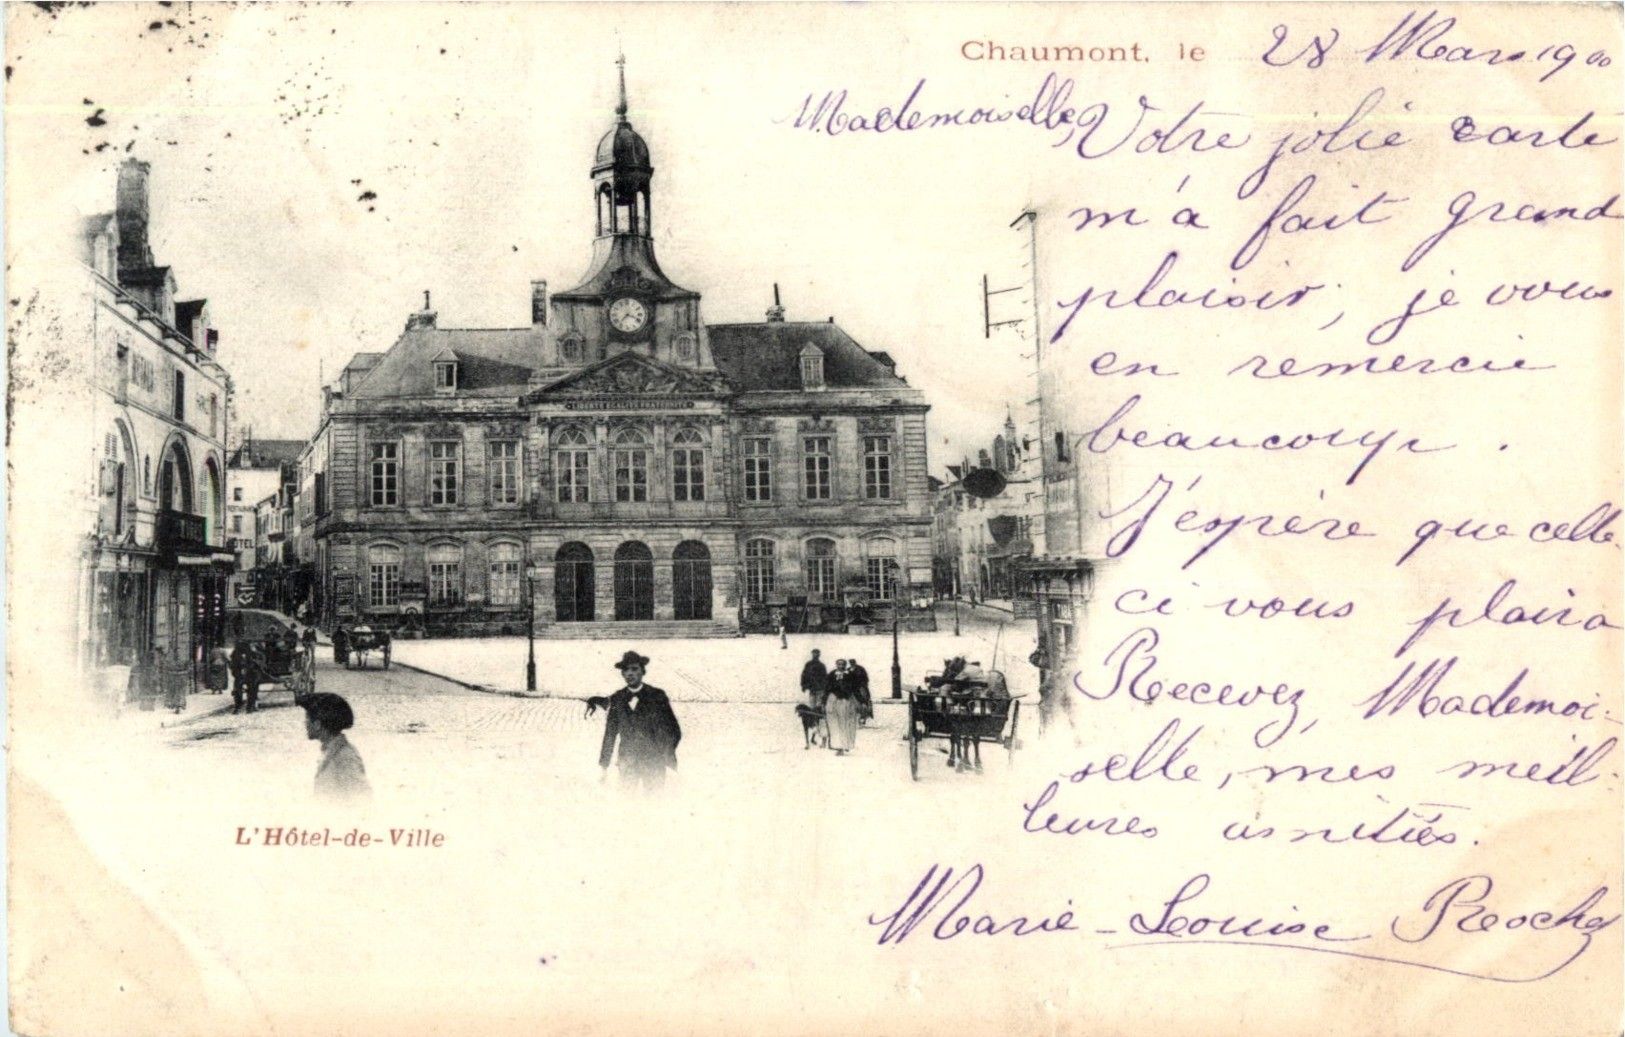 Chaumont, le 28 Mars 1900
Mademoiselle,
Votre jolie carte
m'a fait grand
plaisir, je vous
en remercie
beaucoup.
J'espère que celle-
ci vous plaira
Recevez, Mademoi-
selle, mes meil-
leures amitiés.
Marie-Louise
LIBERTÉ ÉGALITÉ FRATERNITÉ
L'Hôtel-de-Ville